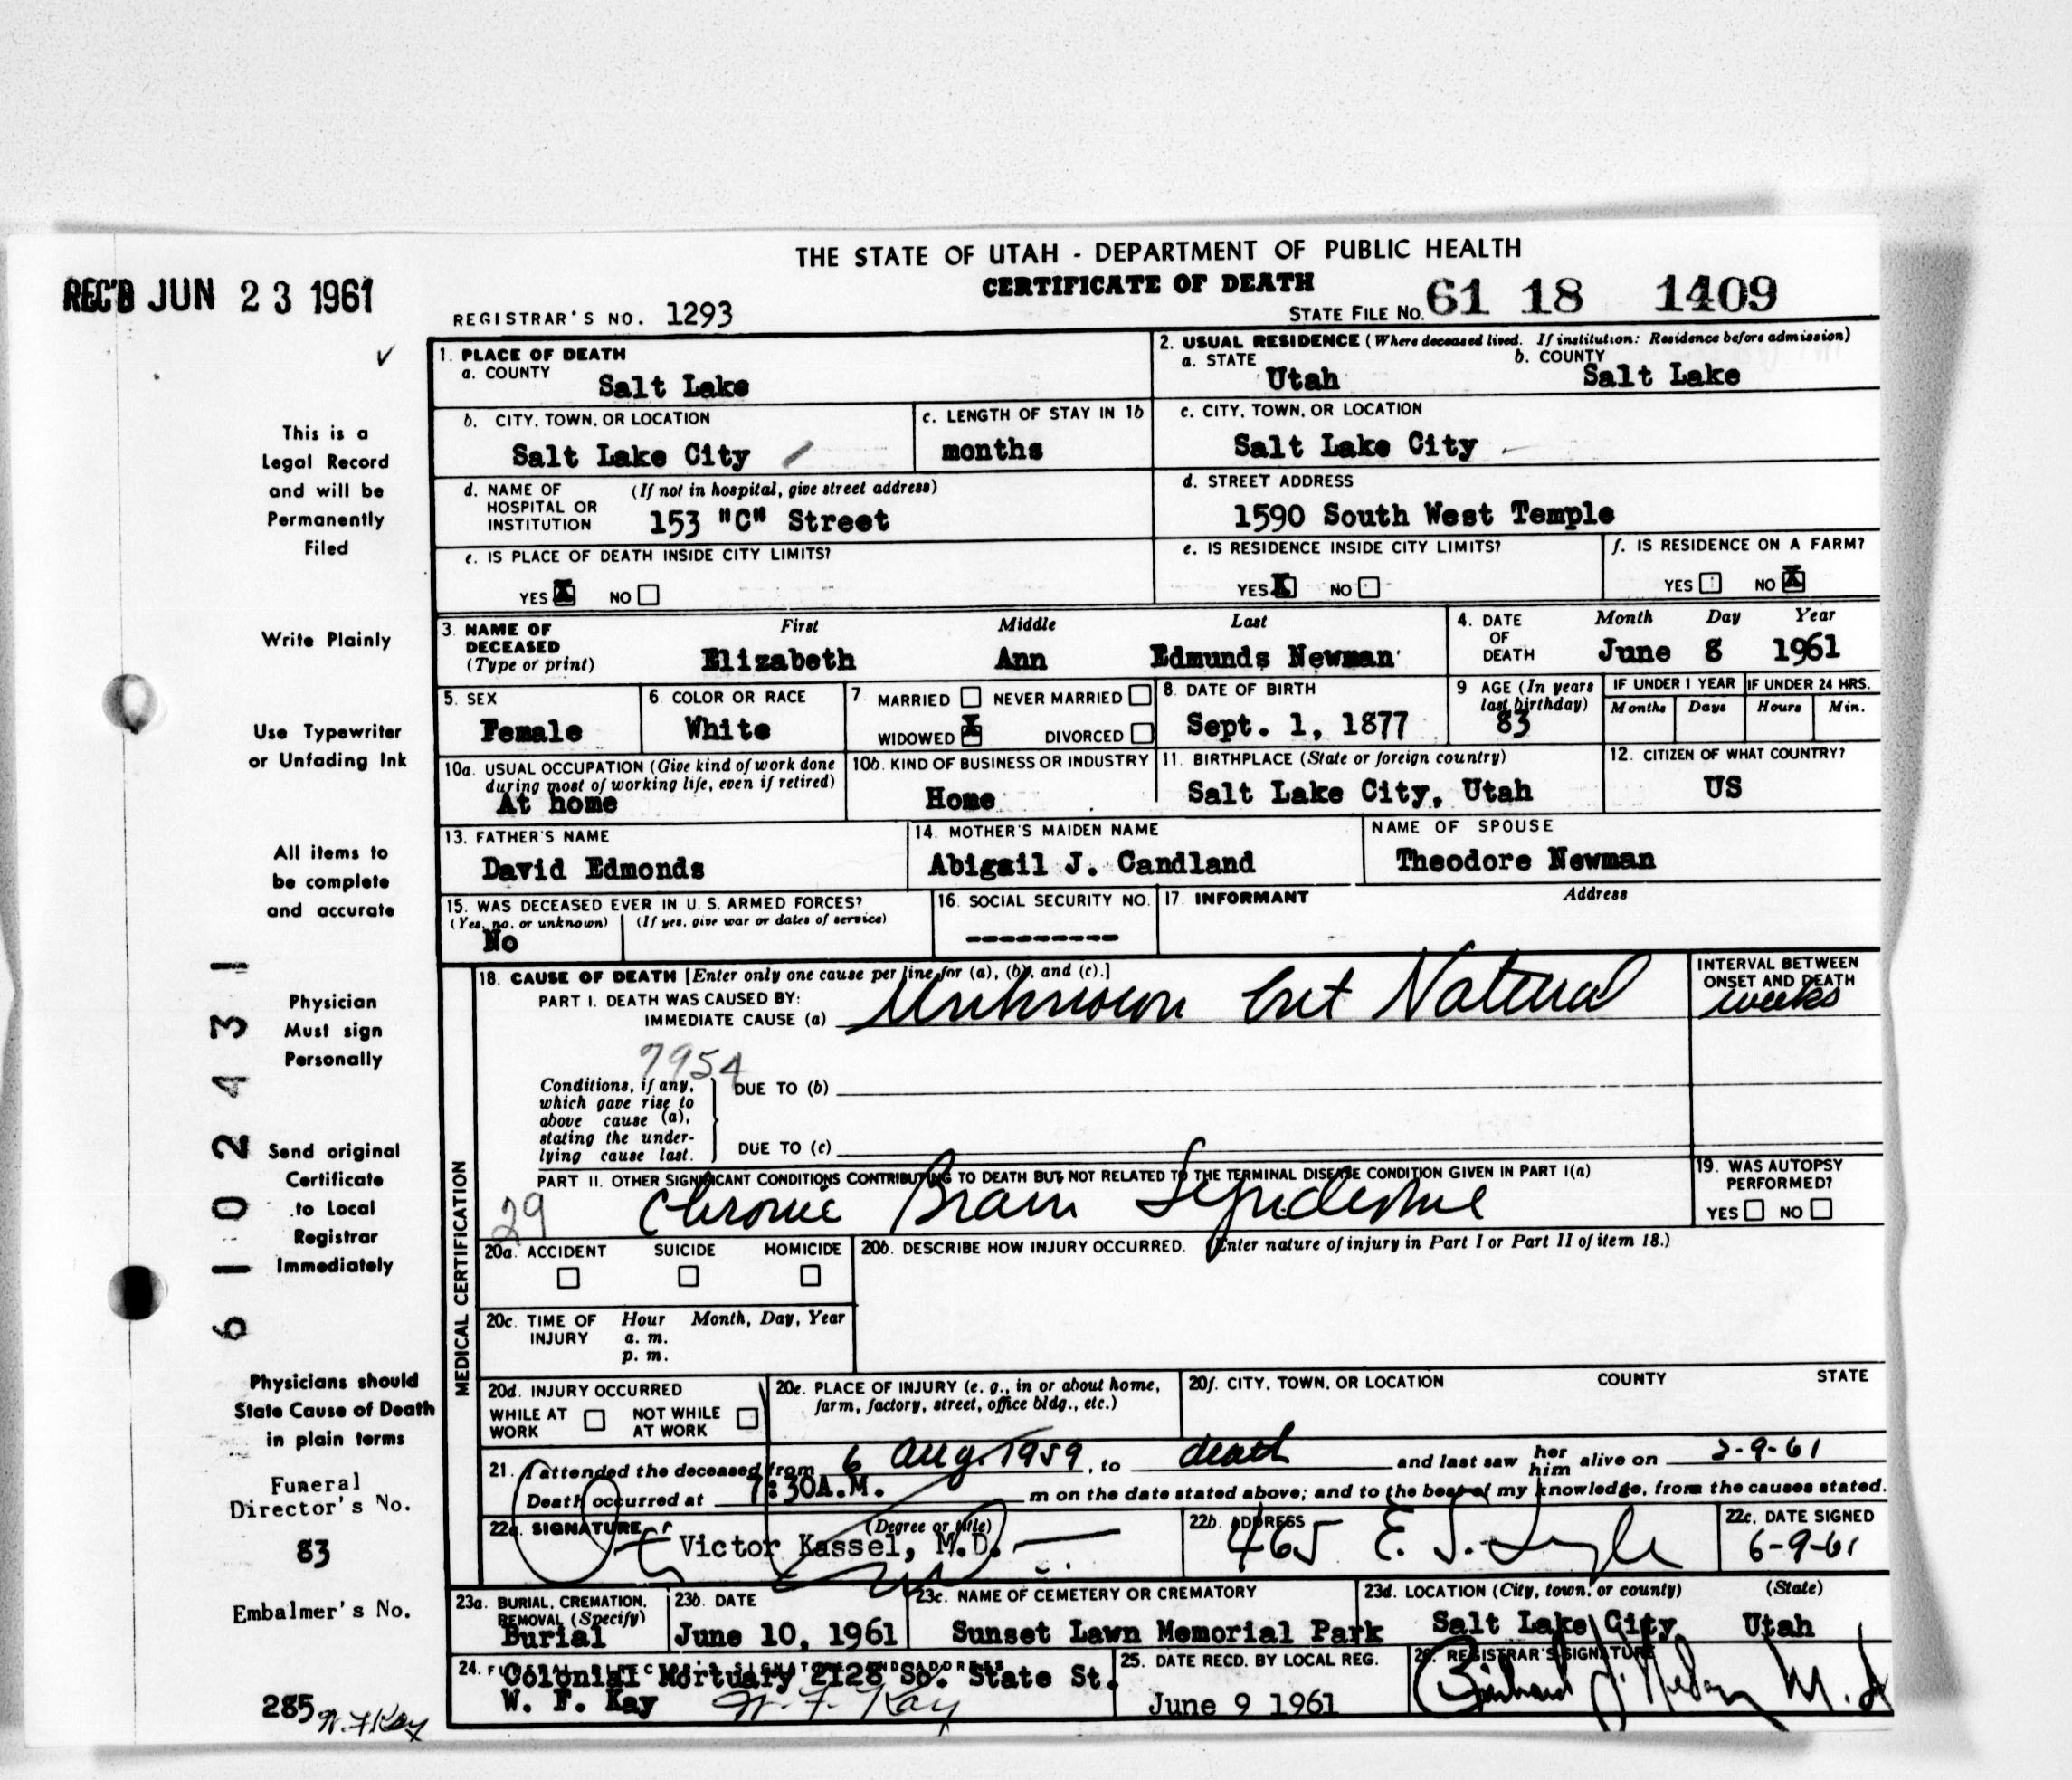 THE STATE OF UTAH - DEPARTMENT OF PUBLIC HEALTH
CERTIFICATE OF DEATH
REC'D JUN 23 1961
REGISTRAR'S NO. 1293
STATE FILE No. 61 18 1409
1. PLACE OF DEATH
a. COUNTY
Salt Lake
2. USUAL RESIDENCE (Where deceased lived. If institution: Residence before admission)
a. STATE
Utah
b. COUNTY
Salt Lake
b. CITY, TOWN, OR LOCATION
Salt Lake City
c. LENGTH OF STAY IN 1b
months
c. CITY, TOWN, OR LOCATION
Salt Lake City
d. NAME OF HOSPITAL OR INSTITUTION
(If not in hospital, give street address)
153 "C" Street
d. STREET ADDRESS
1590 South West Temple
e. IS PLACE OF DEATH INSIDE CITY LIMITS?
YES X NO
e. IS RESIDENCE INSIDE CITY LIMITS?
YES X NO
f. IS RESIDENCE ON A FARM?
YES NO X
3. NAME OF DECEASED (Type or print)
First Middle Last
Elizabeth Ann Edmunds Newman
4. DATE OF DEATH
Month Day Year
June 8 1961
5. SEX
Female
6. COLOR OR RACE
White
7. MARRIED NEVER MARRIED
WIDOWED X DIVORCED
8. DATE OF BIRTH
Sept. 1, 1877
9 AGE (In years last birthday)
83
IF UNDER 1 YEAR
Months Days
IF UNDER 24 HRS.
Hours Min.
10a. USUAL OCCUPATION (Give kind of work done during most of working life, even if retired)
At home
10b. KIND OF BUSINESS OR INDUSTRY
Home
11. BIRTHPLACE (State or foreign country)
Salt Lake City, Utah
12. CITIZEN OF WHAT COUNTRY?
US
13. FATHER'S NAME
David Edmonds
14. MOTHER'S MAIDEN NAME
Abigail J. Candland
NAME OF SPOUSE
Theodore Newman
15. WAS DECEASED EVER IN U. S. ARMED FORCES?
(Yes, no, or unknown) (If yes, give war or dates of service)
No
16. SOCIAL SECURITY NO.
----------
17. INFORMANT Address
MEDICAL CERTIFICATION
18. CAUSE OF DEATH [Enter only one cause per line for (a), (b), and (c).]
PART I. DEATH WAS CAUSED BY:
IMMEDIATE CAUSE (a) Unknown but Natural
INTERVAL BETWEEN ONSET AND DEATH
weeks
7954
Conditions, if any, which gave rise to above cause (a), stating the underlying cause last.
DUE TO (b)
DUE TO (c)
PART II. OTHER SIGNIFICANT CONDITIONS CONTRIBUTING TO DEATH BUT NOT RELATED TO THE TERMINAL DISEASE CONDITION GIVEN IN PART I(a)
29 Chronic Brain Syndrome
19. WAS AUTOPSY PERFORMED?
YES NO
20a. ACCIDENT SUICIDE HOMICIDE
20b. DESCRIBE HOW INJURY OCCURRED. (Enter nature of injury in Part I or Part II of item 18.)
20c. TIME OF INJURY
Hour Month, Day, Year
a. m.
p. m.
20d. INJURY OCCURRED
WHILE AT WORK NOT WHILE AT WORK
20e. PLACE OF INJURY (e. g., in or about home, farm, factory, street, office bldg., etc.)
20f. CITY, TOWN, OR LOCATION COUNTY STATE
21. I attended the deceased from 6 Aug. 1959, to death and last saw her him alive on 2-9-61
Death occurred at 7:30A.M. m on the date stated above; and to the best of my knowledge, from the causes stated.
22a. SIGNATURE (Degree or title)
Victor Kassel, M.D.
22b. ADDRESS
465 E. S. Temple
22c. DATE SIGNED
6-9-61
23a. BURIAL, CREMATION, REMOVAL (Specify)
Burial
23b. DATE
June 10, 1961
23c. NAME OF CEMETERY OR CREMATORY
Sunset Lawn Memorial Park
23d. LOCATION (City, town, or county) (State)
Salt Lake City, Utah
24.
Colonial Mortuary 2128 So. State St.
W. F. Kay W. F. Kay
25. DATE RECD. BY LOCAL REG.
June 9 1961
26. REGISTRAR'S SIGNATURE
M.D
This is a
Legal Record
and will be
Permanently
Filed
Write Plainly
Use Typewriter
or Unfading Ink
All items to
be complete
and accurate
Physician
Must sign
Personally
Send original
Certificate
to Local
Registrar
Immediately
Physicians should
State Cause of Death
in plain terms
Funeral
Director's No.
83
Embalmer's No.
285 W. F Kay
61 02 431